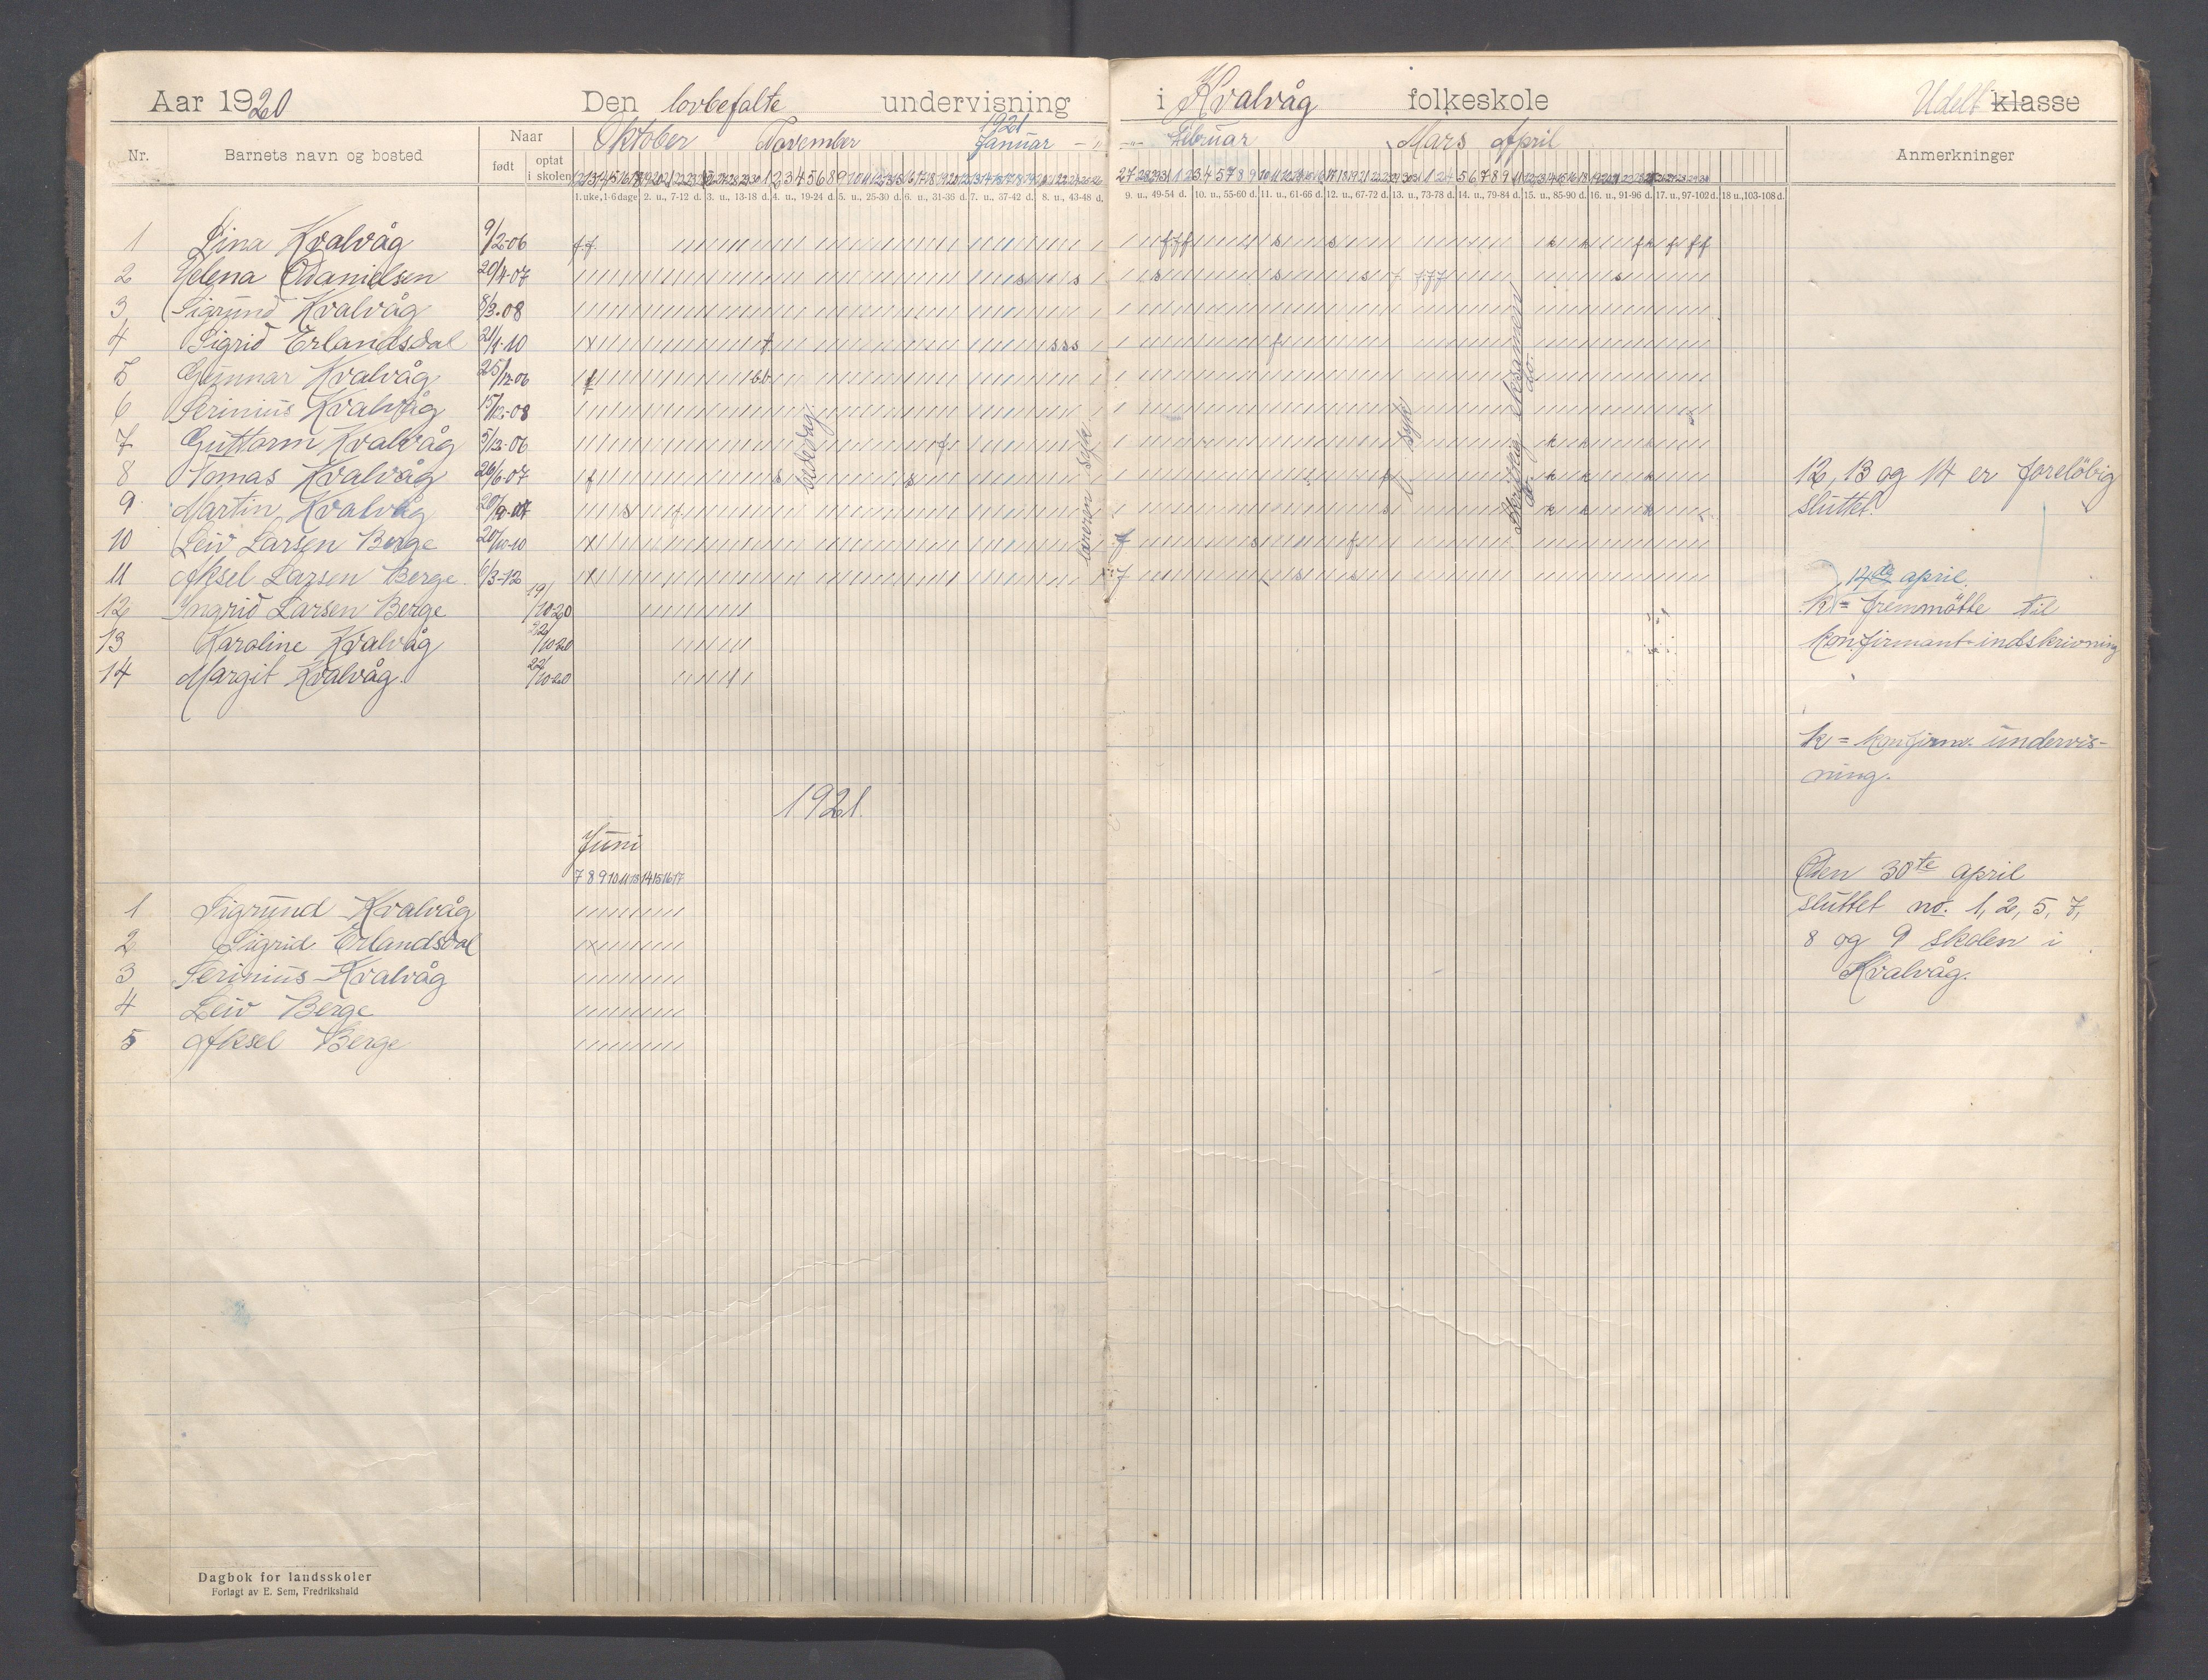 Aar 1920 Den lovbefalte undervisning i Kvalvåg folkeskole Udelt klasse
Nr. Barnets navn og bosted Naar født optat i skolen Oktober November 1921 Januar Februar Mars April Anmerkninger
1. uke, 1-6 dage 2. u., 7-12 d. 3. u., 13-18 d. 4. u., 19-24 d. 5. u., 25-30 d. 6. u., 31-36 d. 7. u., 37-42 d. 8. u., 43-48 d. 9. u., 49-54 d. 10. u., 55-60 d. 11. u., 61-66 d. 12. u., 67-72 d. 13. u., 73-78 d. 14. u., 79-84 d. 15. u., 85-90 d. 16. u., 91-96 d. 17. u., 97-102 d. 18 u., 103-108 d.
1 Lina Kvalvåg 9/2-06
2 Helena Danielsen 20/4-07
3 Sigrund Kvalvåg 8/3-08
4 Sigrid Erlandsdal 21/1-10
5 Gunnar Kvalvåg 25/12-06
6 Serinius Kvalvåg 15/12-08
7 Guttorm Kvalvåg 5/12-06
8 Tomas Kvalvåg 26/6-07
9 Martin Kvalvåg
10 Leiv Larsen Berge 20/10-10
11 Aksel Larsen Berge 6/3-12
12 Ingrid Larsen Berge 19/10-20
13 Karoline Kvalvåg 22/10-20
14 Margit Kvalvåg. 22/10-20
bededag
læreren syk
syk
Skriftlig eksamen
do.
12, 13 og 14 er foreløbig
sluttet.
14de april.
k = fremmötte til
konfirmant-indskrivning
k = konfirm. undervis-
ning.
1921.
Juni
7 8 9 10 11 13 14 15 16 17
1 Sigrund Kvalvåg
2 Sigrid Erlandsdal
3 Serinius Kvalvåg
4 Leiv Berge
5 Aksel Berge
Den 30te april
sluttet no. 1, 2, 5, 7,
8 og 9 skolen i
Kvalvåg.
Dagbok for landsskoler
Forlagt av E. Sem, Fredrikshald